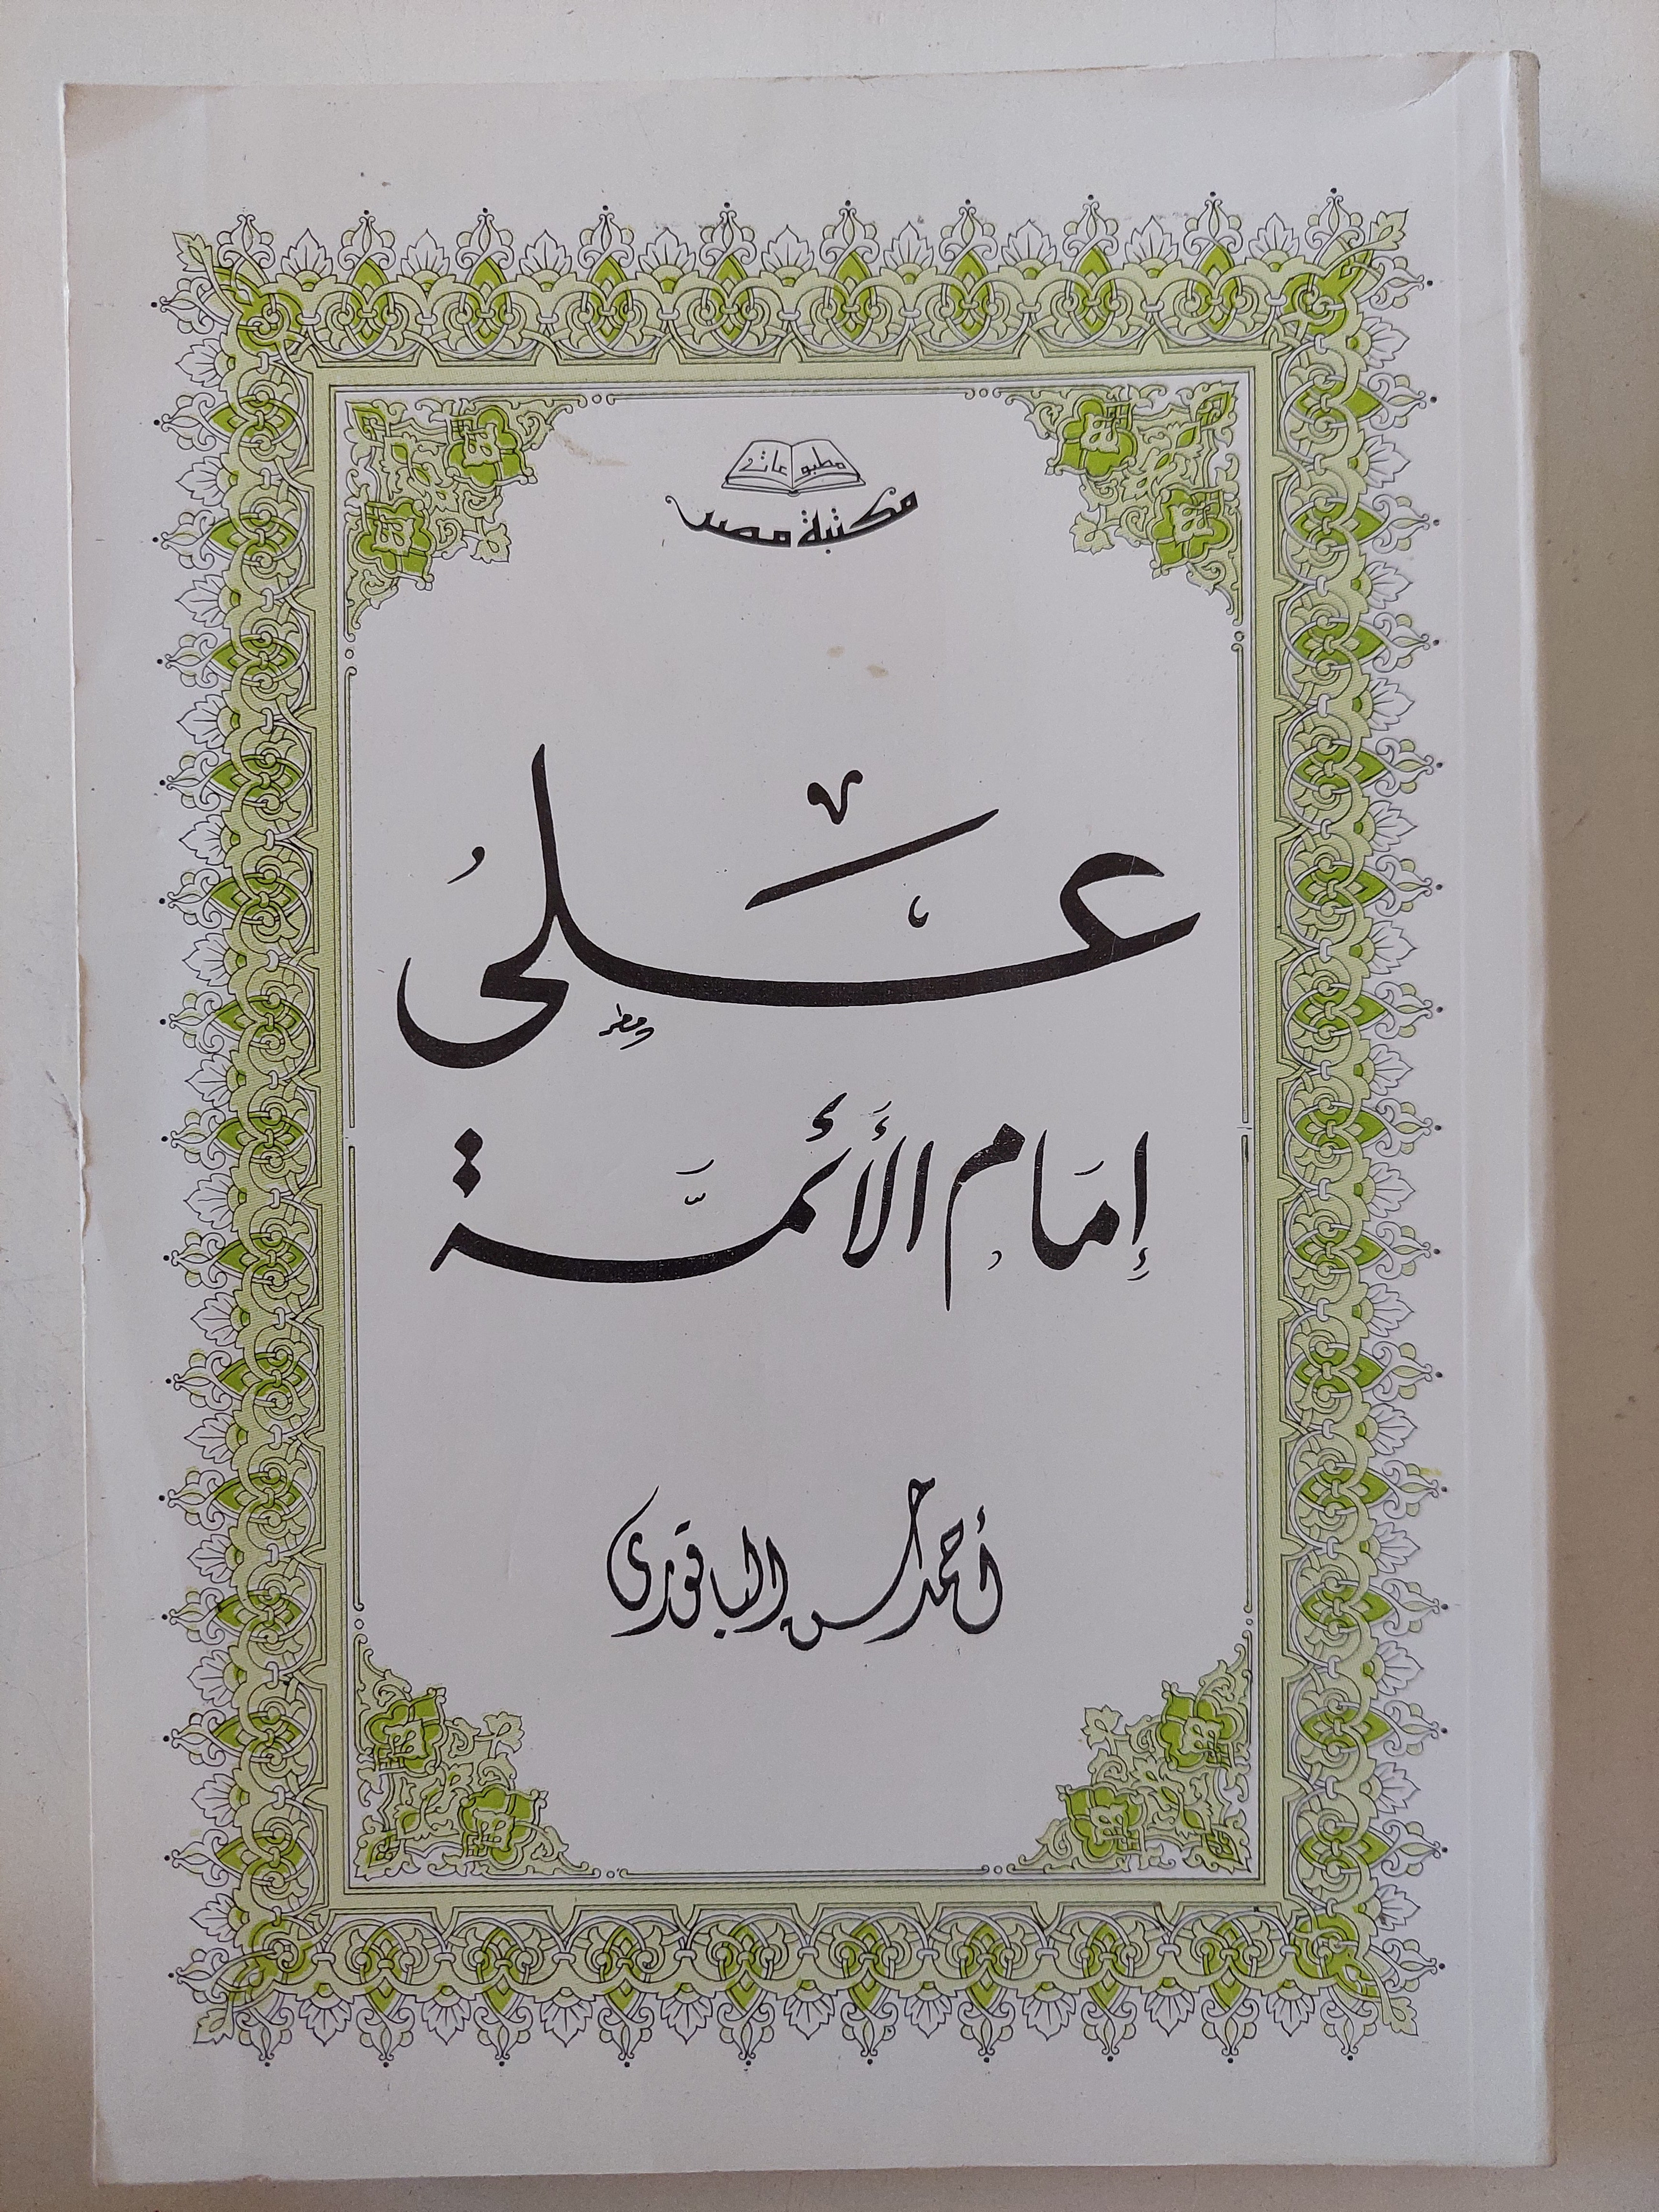 مطبوعات
مكتبة مصر
عَلىُ
إِمَامِ الأَئمَّة
أحمد حسن الباقورى